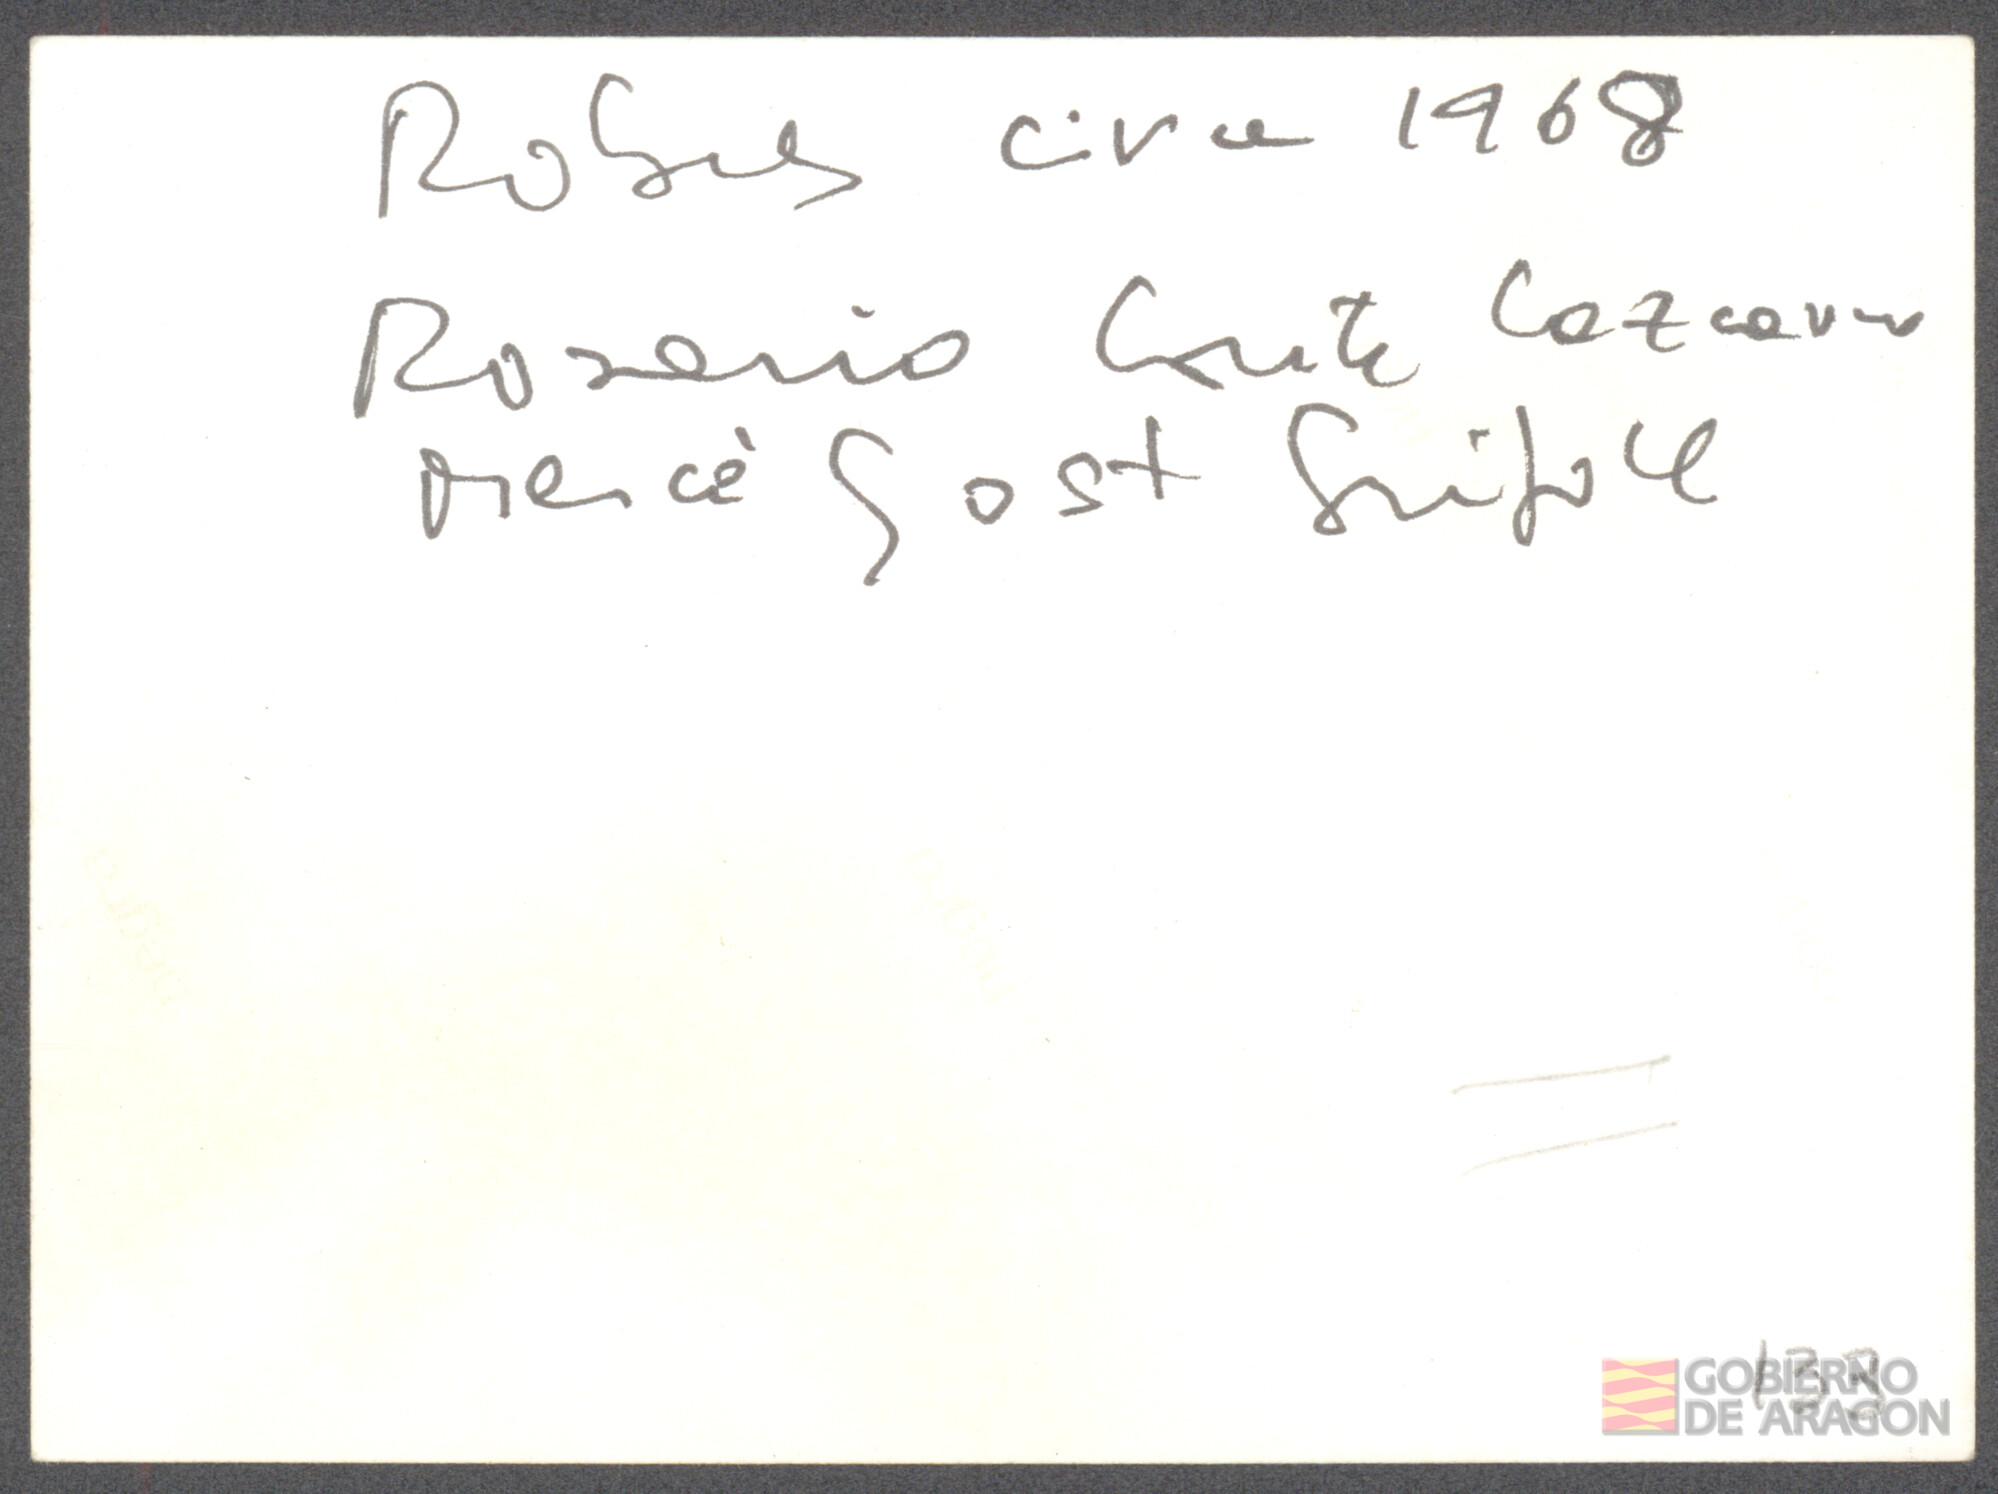 Robres circa 1968
Rosario Conte Cazcarro
Mercè Gost Grifoll
GOBIERNO
DE ARAGON